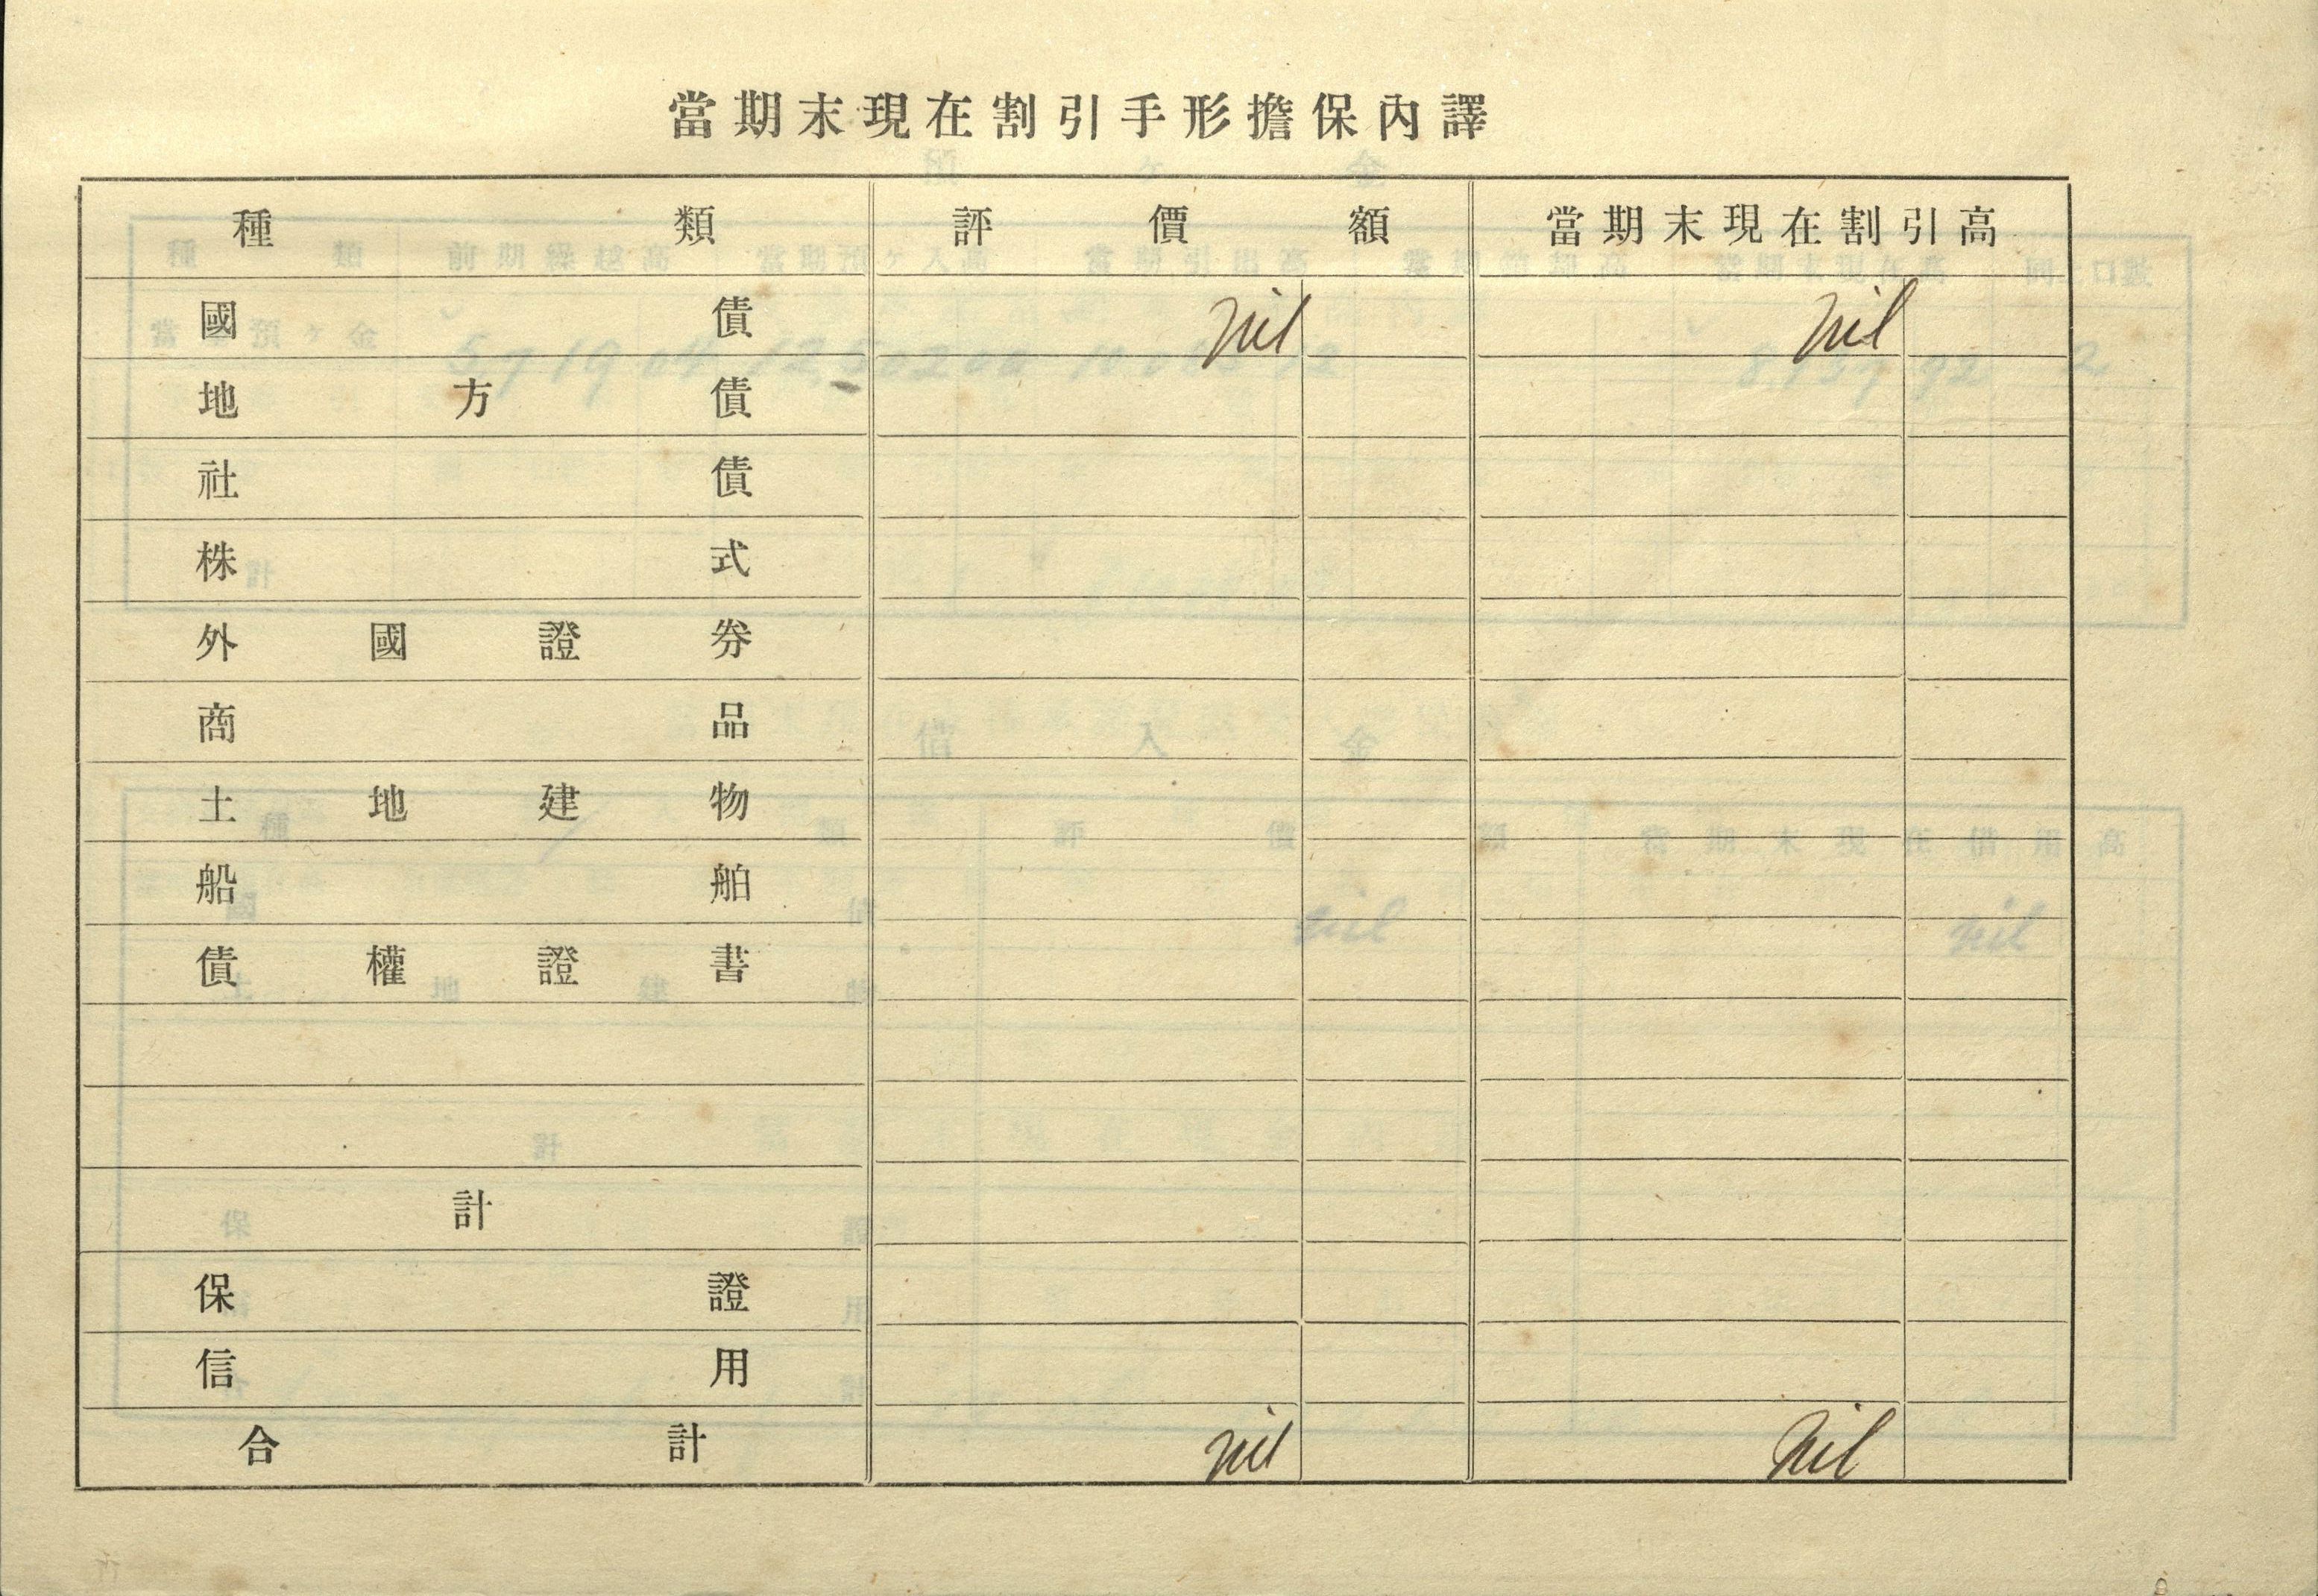 當期末現在割引手形擔保內譯
種類 評價額 當期末現在割引高
國債 nil nil
地方債
社債
株式
外國證券
商品
土地建物
船舶
債權證書
計
保證
信用
合計 nil nil